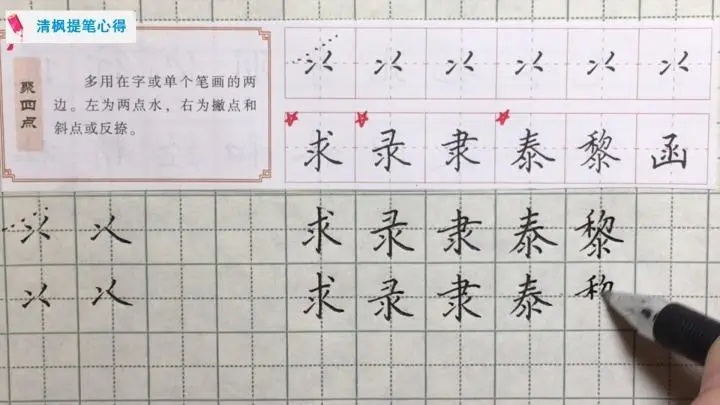 清枫提笔心得
聚四点
多用在字或单个笔画的两
边。左为两点水，右为撇点和
斜点或反捺。
求录隶泰黎函
求录隶泰黎
求录隶泰